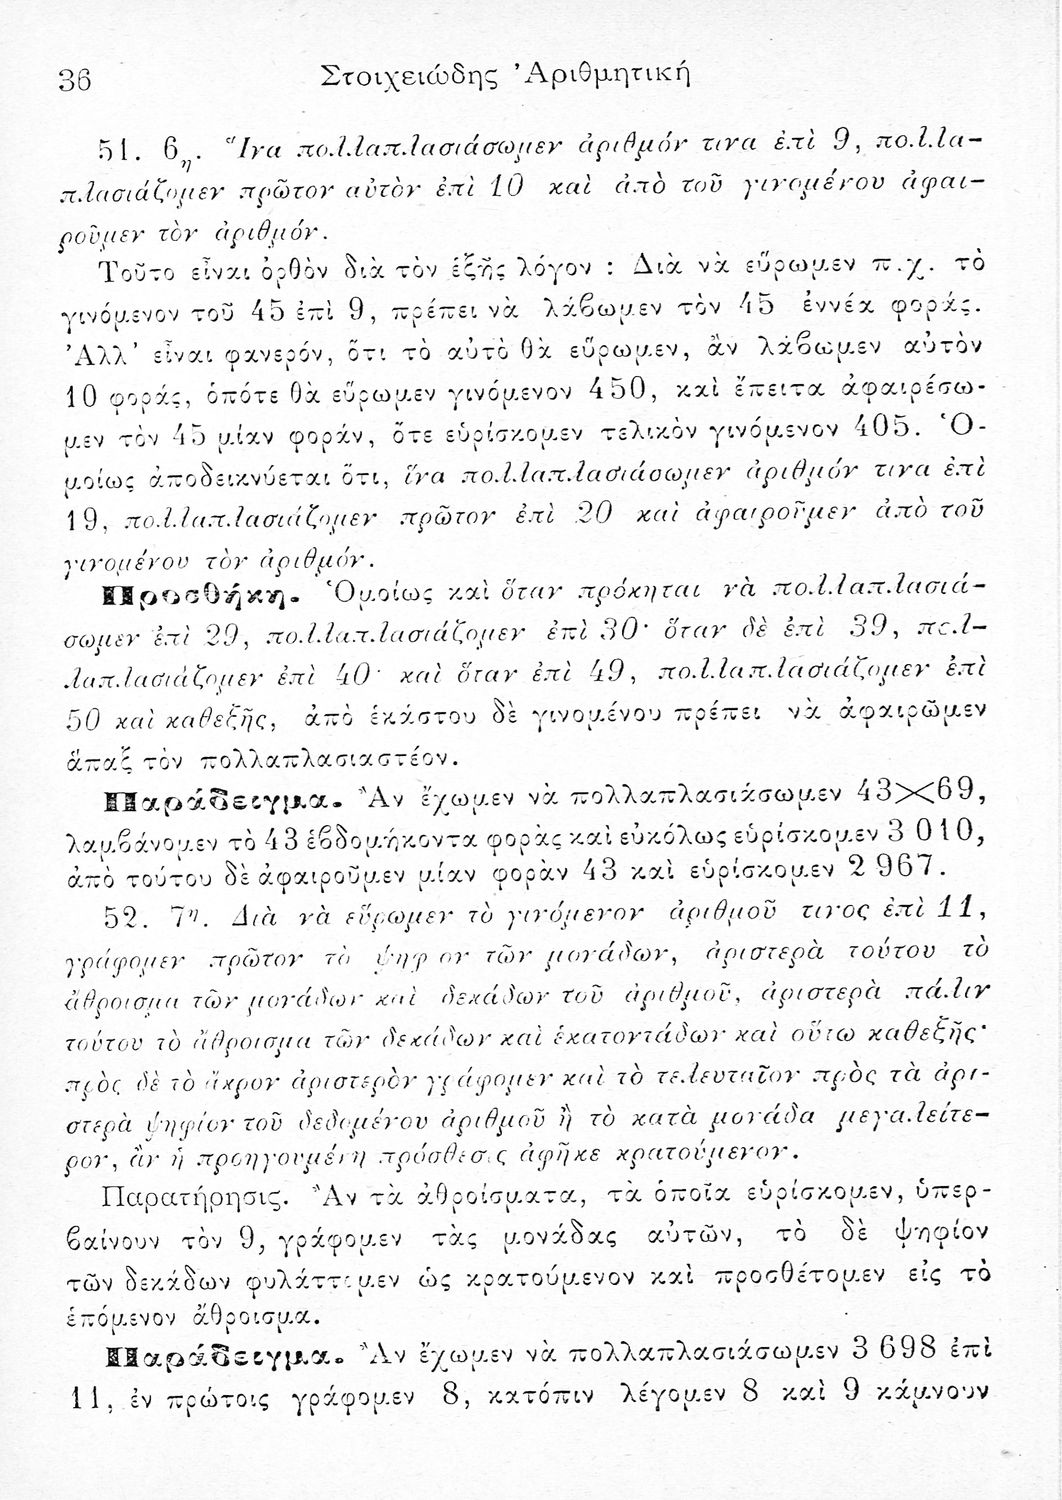 36
Στοιχειώδης Ἀριθμητική
51. 6η. Ἵνα πολλαπλασιάσωμεν ἀριθμόν τινα ἐπὶ 9, πολλα-
πλασιάζομεν πρῶτον αὐτὸν ἐπὶ 10 καὶ ἀπὸ τοῦ γινομένου ἀφαι-
ροῦμεν τὸν ἀριθμόν.
Τοῦτο εἶναι ὀρθὸν διὰ τὸν ἑξῆς λόγον : Διὰ νὰ εὕρωμεν π.χ. τὸ
γινόμενον τοῦ 45 ἐπὶ 9, πρέπει νὰ λάβωμεν τὸν 45 ἐννέα φοράς.
Ἀλλ' εἶναι φανερόν, ὅτι τὸ αὐτὸ θὰ εὕρωμεν, ἂν λάβωμεν αὐτὸν
10 φοράς, ὁπότε θὰ εὕρωμεν γινόμενον 450, καὶ ἔπειτα ἀφαιρέσω-
μεν τὸν 45 μίαν φοράν, ὅτε εὑρίσκομεν τελικὸν γινόμενον 405. Ὁ-
μοίως ἀποδεικνύεται ὅτι, ἵνα πολλαπλασιάσωμεν ἀριθμόν τινα ἐπὶ
19, πολλαπλασιάζομεν πρῶτον ἐπὶ 20 καὶ ἀφαιροῦμεν ἀπὸ τοῦ
γινομένου τὸν ἀριθμόν.
Προσθήκη. Ὁμοίως καὶ ὅταν πρόκηται νὰ πολλαπλασιά-
σωμεν ἐπὶ 29, πολλαπλασιάζομεν ἐπὶ 30· ὅταν δὲ ἐπὶ 39, πολ-
λαπλασιάζομεν ἐπὶ 40· καὶ ὅταν ἐπὶ 49, πολλαπλασιάζομεν ἐπὶ
50 καὶ καθεξῆς, ἀπὸ ἑκάστου δὲ γινομένου πρέπει νὰ ἀφαιρῶμεν
ἅπαξ τὸν πολλαπλασιαστέον.
Παράδειγμα. Ἂν ἔχωμεν νὰ πολλαπλασιάσωμεν 43×69,
λαμβάνομεν τὸ 43 ἑβδομήκοντα φορὰς καὶ εὐκόλως εὑρίσκομεν 3 010,
ἀπὸ τούτου δὲ ἀφαιροῦμεν μίαν φορὰν 43 καὶ εὑρίσκομεν 2 967.
52. 7η. Διὰ νὰ εὕρωμεν τὸ γινόμενον ἀριθμοῦ τινος ἐπὶ 11,
γράφομεν πρῶτον τὸ ψηφίον τῶν μονάδων, ἀριστερὰ τούτου τὸ
ἄθροισμα τῶν μονάδων καὶ δεκάδων τοῦ ἀριθμοῦ, ἀριστερὰ πάλιν
τούτου τὸ ἄθροισμα τῶν δεκάδων καὶ ἑκατοντάδων καὶ οὕτω καθεξῆς·
πρὸς δὲ τὸ ἄκρον ἀριστερὸν γράφομεν καὶ τὸ τελευταῖον πρὸς τὰ ἀρι-
στερὰ ψηφίον τοῦ δεδομένου ἀριθμοῦ ἢ τὸ κατὰ μονάδα μεγαλείτε-
ρον, ἂν ἡ προηγουμένη πρόσθεσις ἀφῆκε κρατούμενον.
Παρατήρησις. Ἂν τὰ ἀθροίσματα, τὰ ὁποῖα εὑρίσκομεν, ὑπερ-
βαίνουν τὸν 9, γράφομεν τὰς μονάδας αὐτῶν, τὸ δὲ ψηφίον
τῶν δεκάδων φυλάττομεν ὡς κρατούμενον καὶ προσθέτομεν εἰς τὸ
ἑπόμενον ἄθροισμα.
Παράδειγμα. Ἂν ἔχωμεν νὰ πολλαπλασιάσωμεν 3 698 ἐπὶ
11, ἐν πρώτοις γράφομεν 8, κατόπιν λέγομεν 8 καὶ 9 κάμνουν